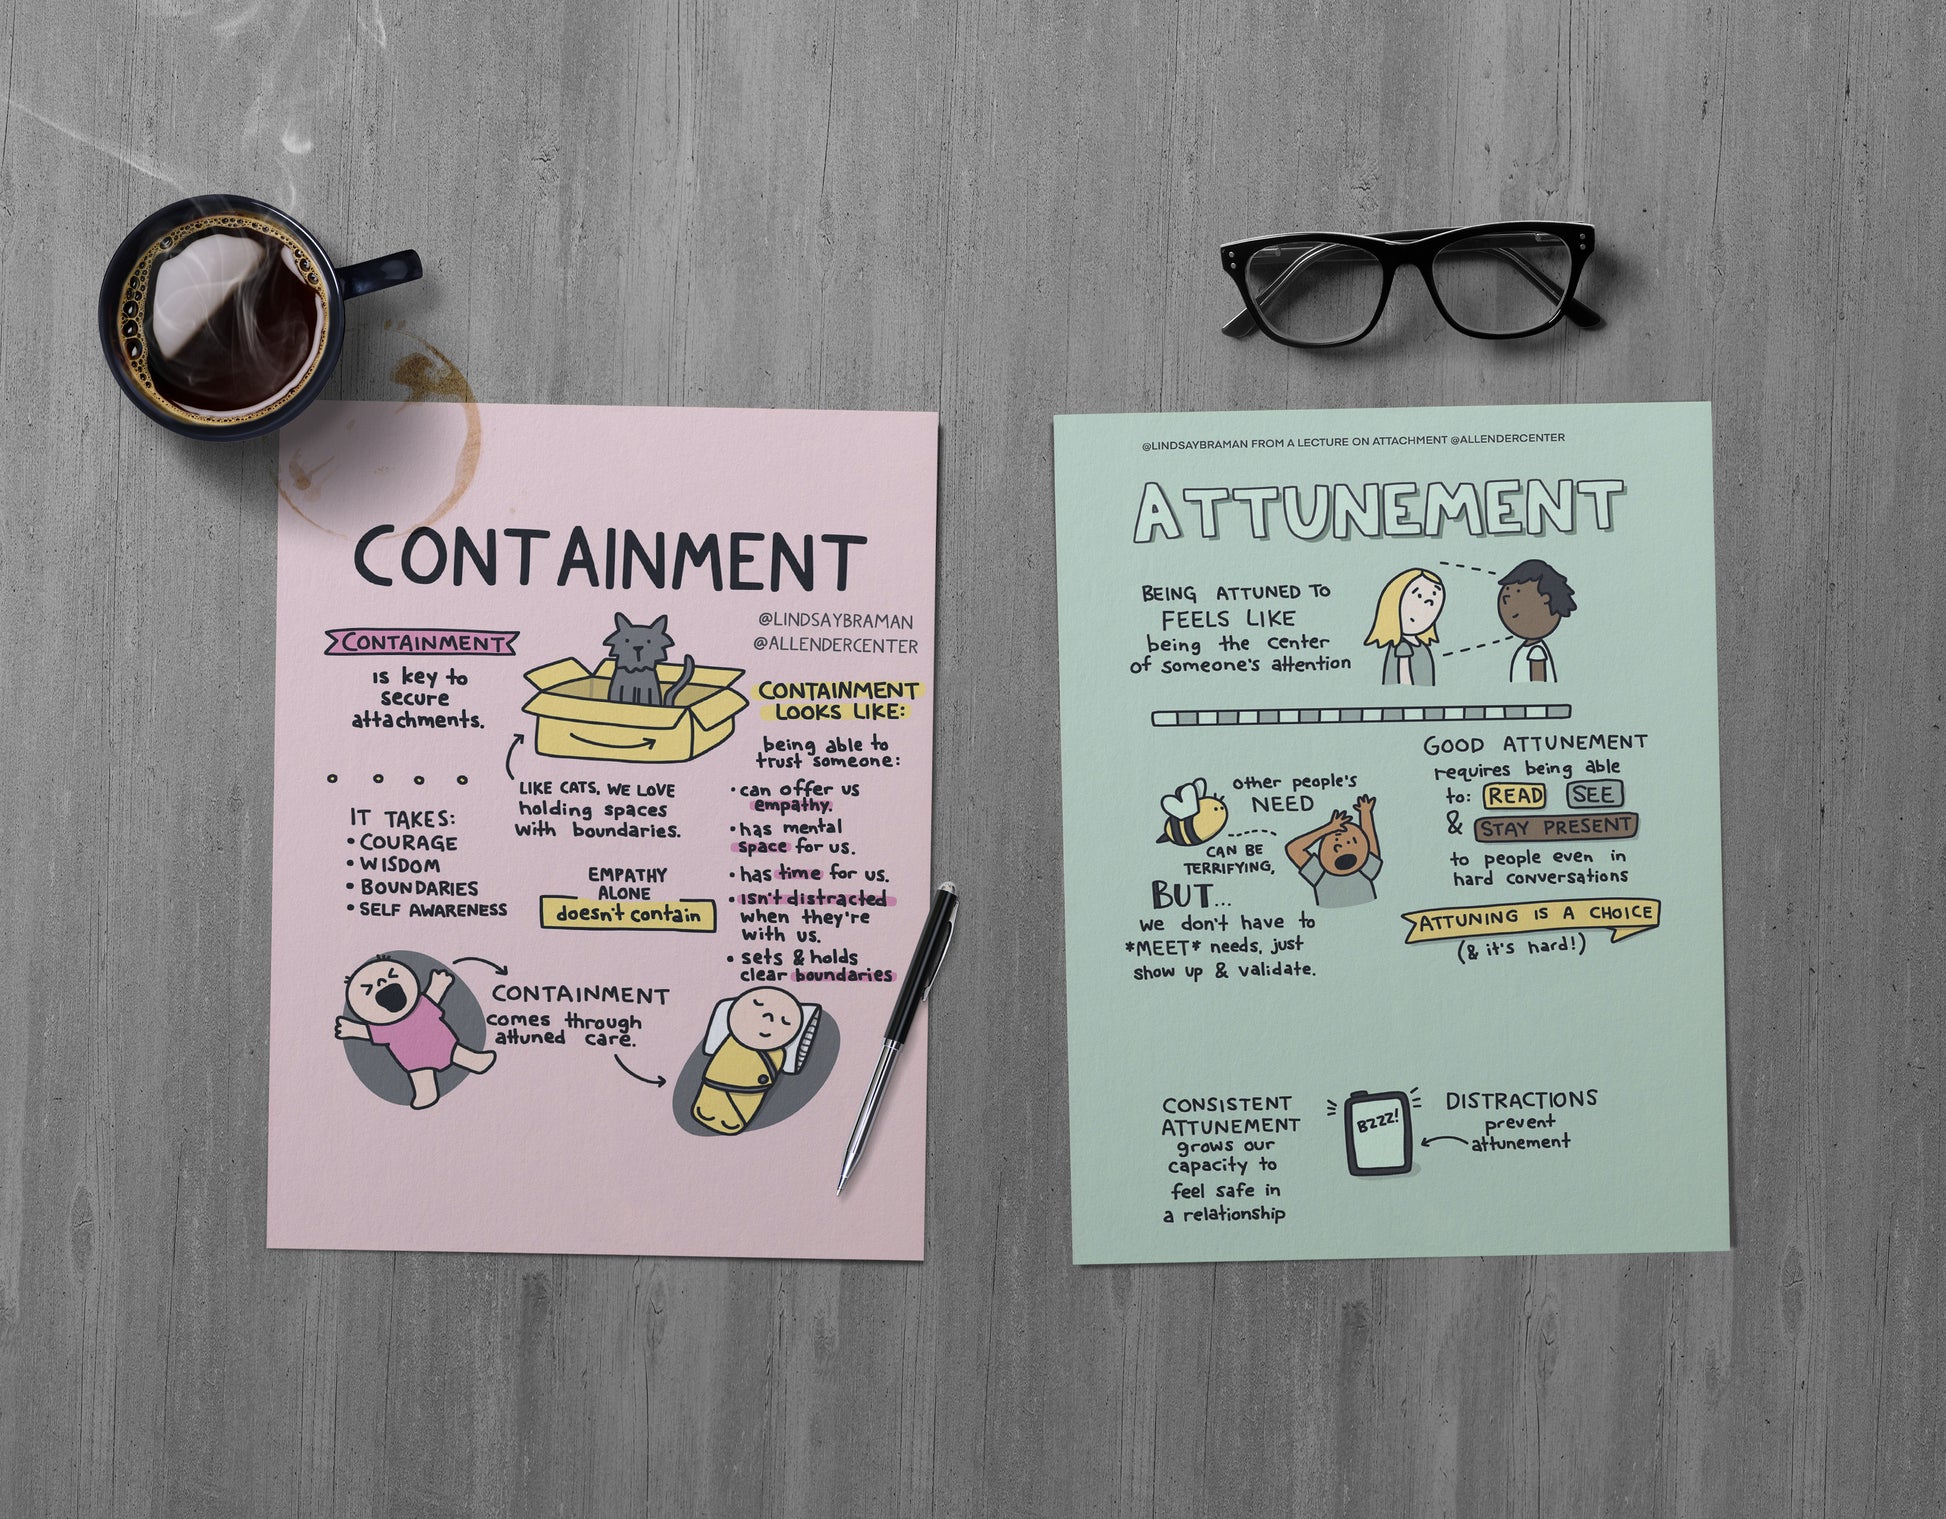 CONTAINMENT
@LINDSAYBRAMAN
@ALLENDERCENTER
CONTAINMENT
is key to
secure
attachments.
IT TAKES:
• COURAGE
• WISDOM
• BOUNDARIES
• SELF AWARENESS
LIKE CATS, WE LOVE
holding spaces
with boundaries.
EMPATHY
ALONE
doesn't contain
CONTAINMENT
LOOKS LIKE:
being able to
trust someone:
• can offer us
empathy.
• has mental
space for us.
• has time for us.
• isn't distracted
when they're
with us.
• sets & holds
clear boundaries
CONTAINMENT
comes through
attuned care.
@LINDSAYBRAMAN FROM A LECTURE ON ATTACHMENT @ALLENDERCENTER
ATTUNEMENT
BEING ATTUNED TO
FEELS LIKE
being the center
of someone's attention
other people's
NEED
CAN BE
TERRIFYING,
BUT...
we don't have to
*MEET* needs, just
show up & validate.
GOOD ATTUNEMENT
requires being able
to: READ SEE
& STAY PRESENT
to people even in
hard conversations
ATTUNING IS A CHOICE
(& it's hard!)
CONSISTENT
ATTUNEMENT
grows our
capacity to
feel safe in
a relationship
BZZZ!
DISTRACTIONS
prevent
attunement